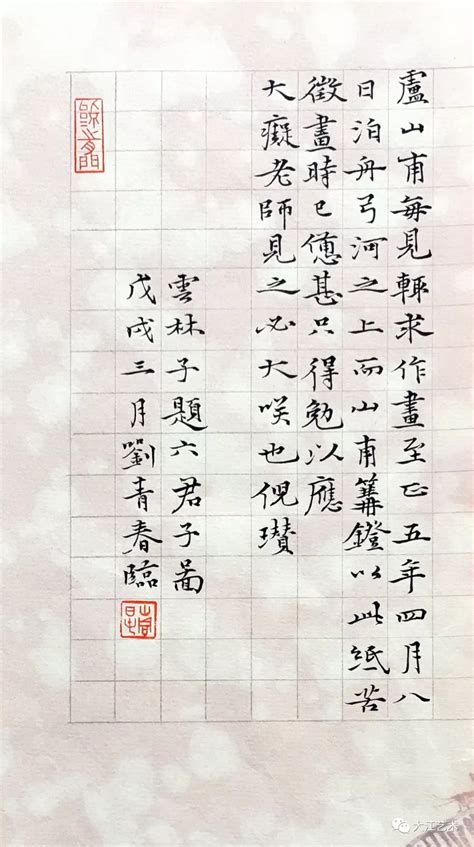 盧山甫每見輒求作畫至正五年四月八
日泊舟弓河之上而山甫篝鐙以此紙苦
徵畫時已憊甚只得勉以應
大癡老師見之必大咲也倪瓚
雲林子題六君子啚
戊戌三月劉青春臨
大江艺术